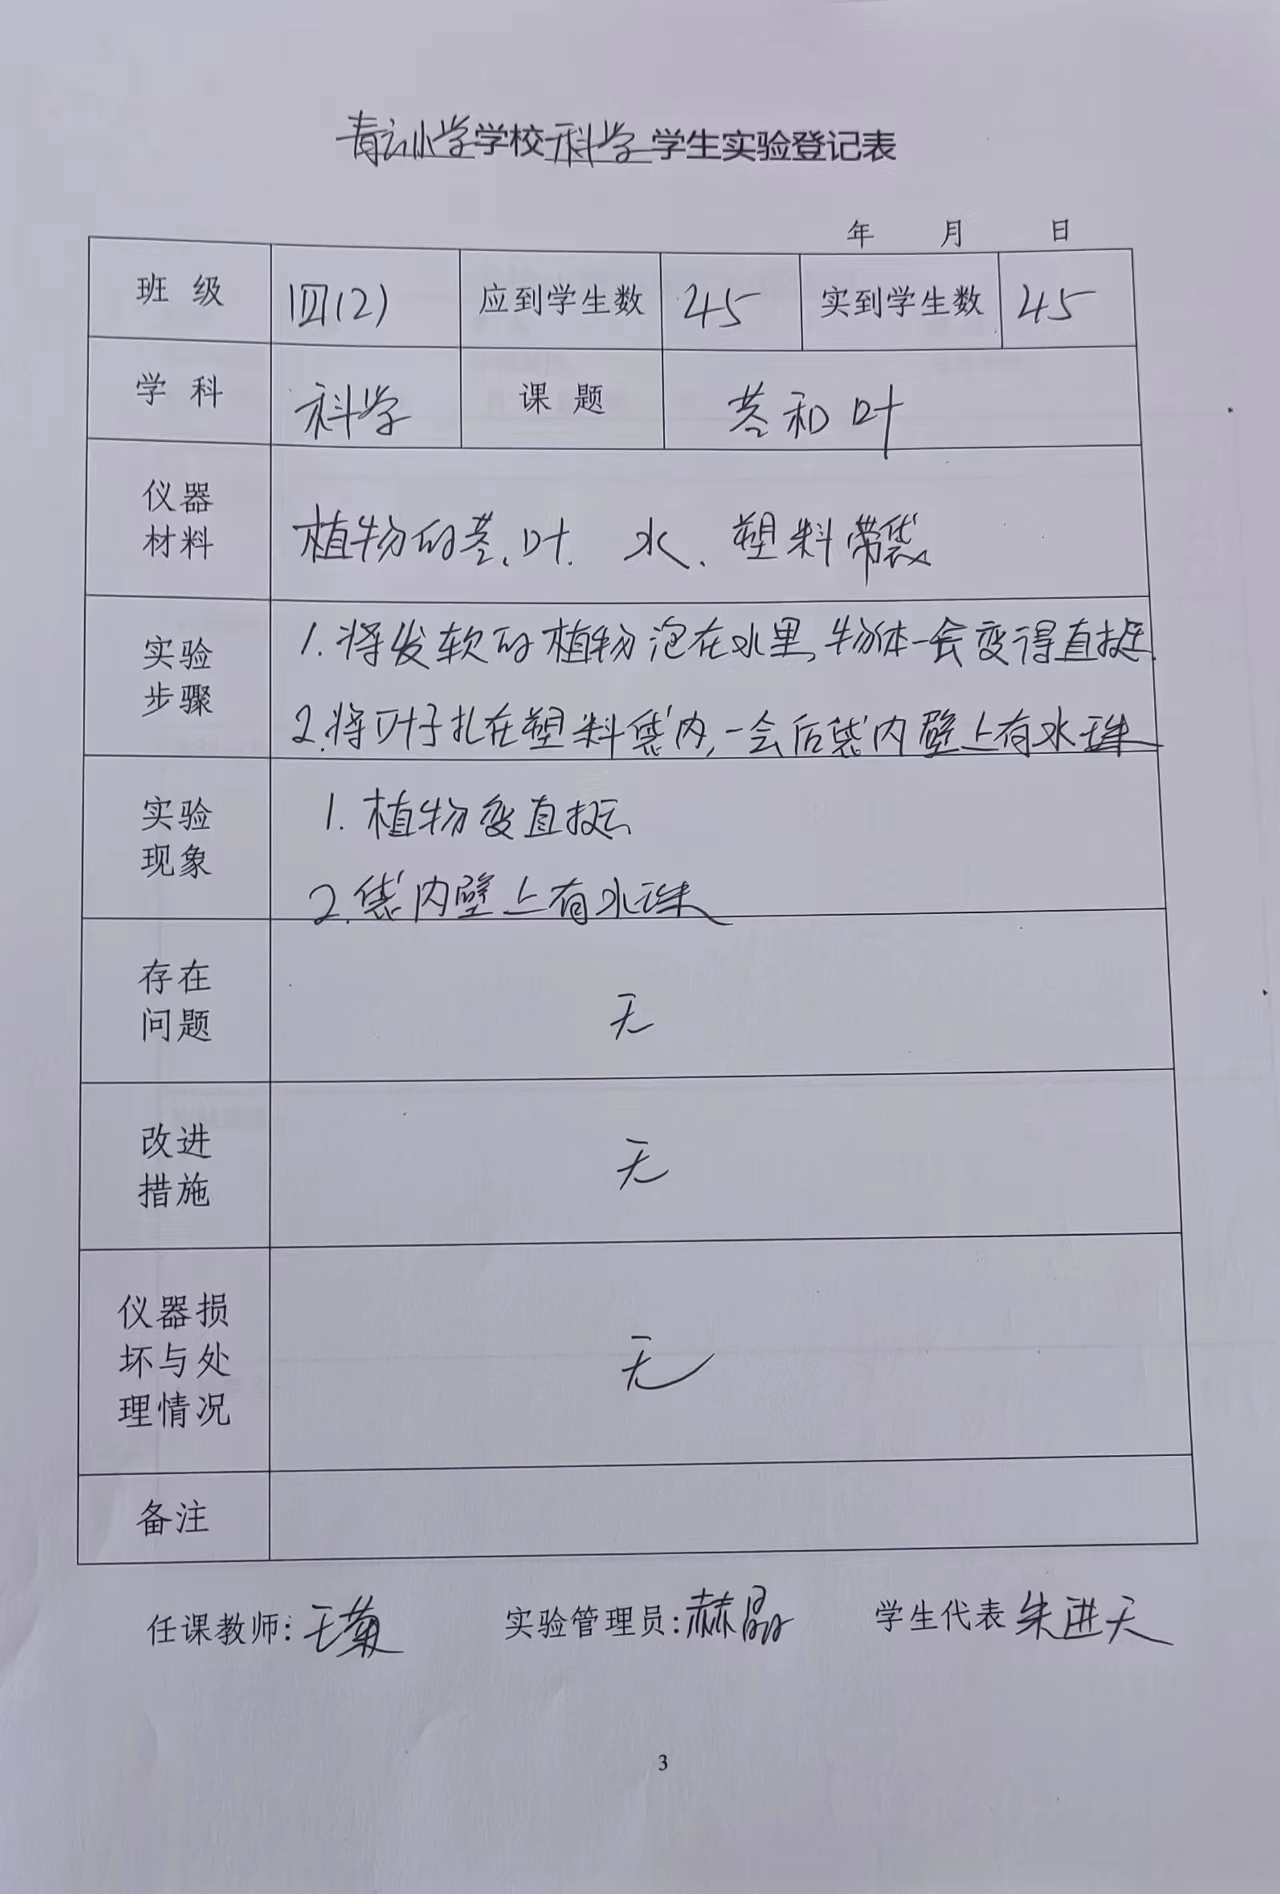 青云小学学校科学学生实验登记表
年 月 日
班级 四(2) 应到学生数 45 实到学生数 45
学科 科学 课题 茎和叶
仪器
材料
植物的茎、叶、水、塑料带袋
实验
步骤
1.将发软的植物泡在水里,物体一会变得直挺.
2.将叶子扎在塑料袋内,一会后袋内壁上有水珠
实验
现象
1.植物变直挺
2.袋内壁上有水珠
存在
问题
无
改进
措施
无
仪器损
坏与处
理情况
无
备注
任课教师:王菊 实验管理员:赫晶 学生代表 朱进天
3